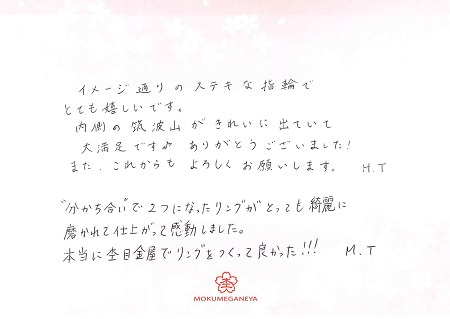 イメージ通りのステキな指輪で
とても嬉しいです。
内側の筑波山がきれいに出ていて
大満足です♪ ありがとうございました!
また、これからも よろしくお願いします。 M.T
"分かち合い"で2つになったリングがとっても綺麗に
磨かれて仕上がって感動しました。
本当に杢目金屋でリングをつくって良かった!!! M.T
MOKUMEGANEYA